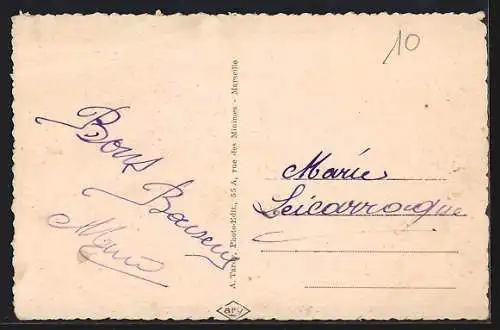 10
Bons
Baisers
Marie
A. Tardy, Photo-Edit., 55A, rue des Minimes - Marseille
Marie
ary